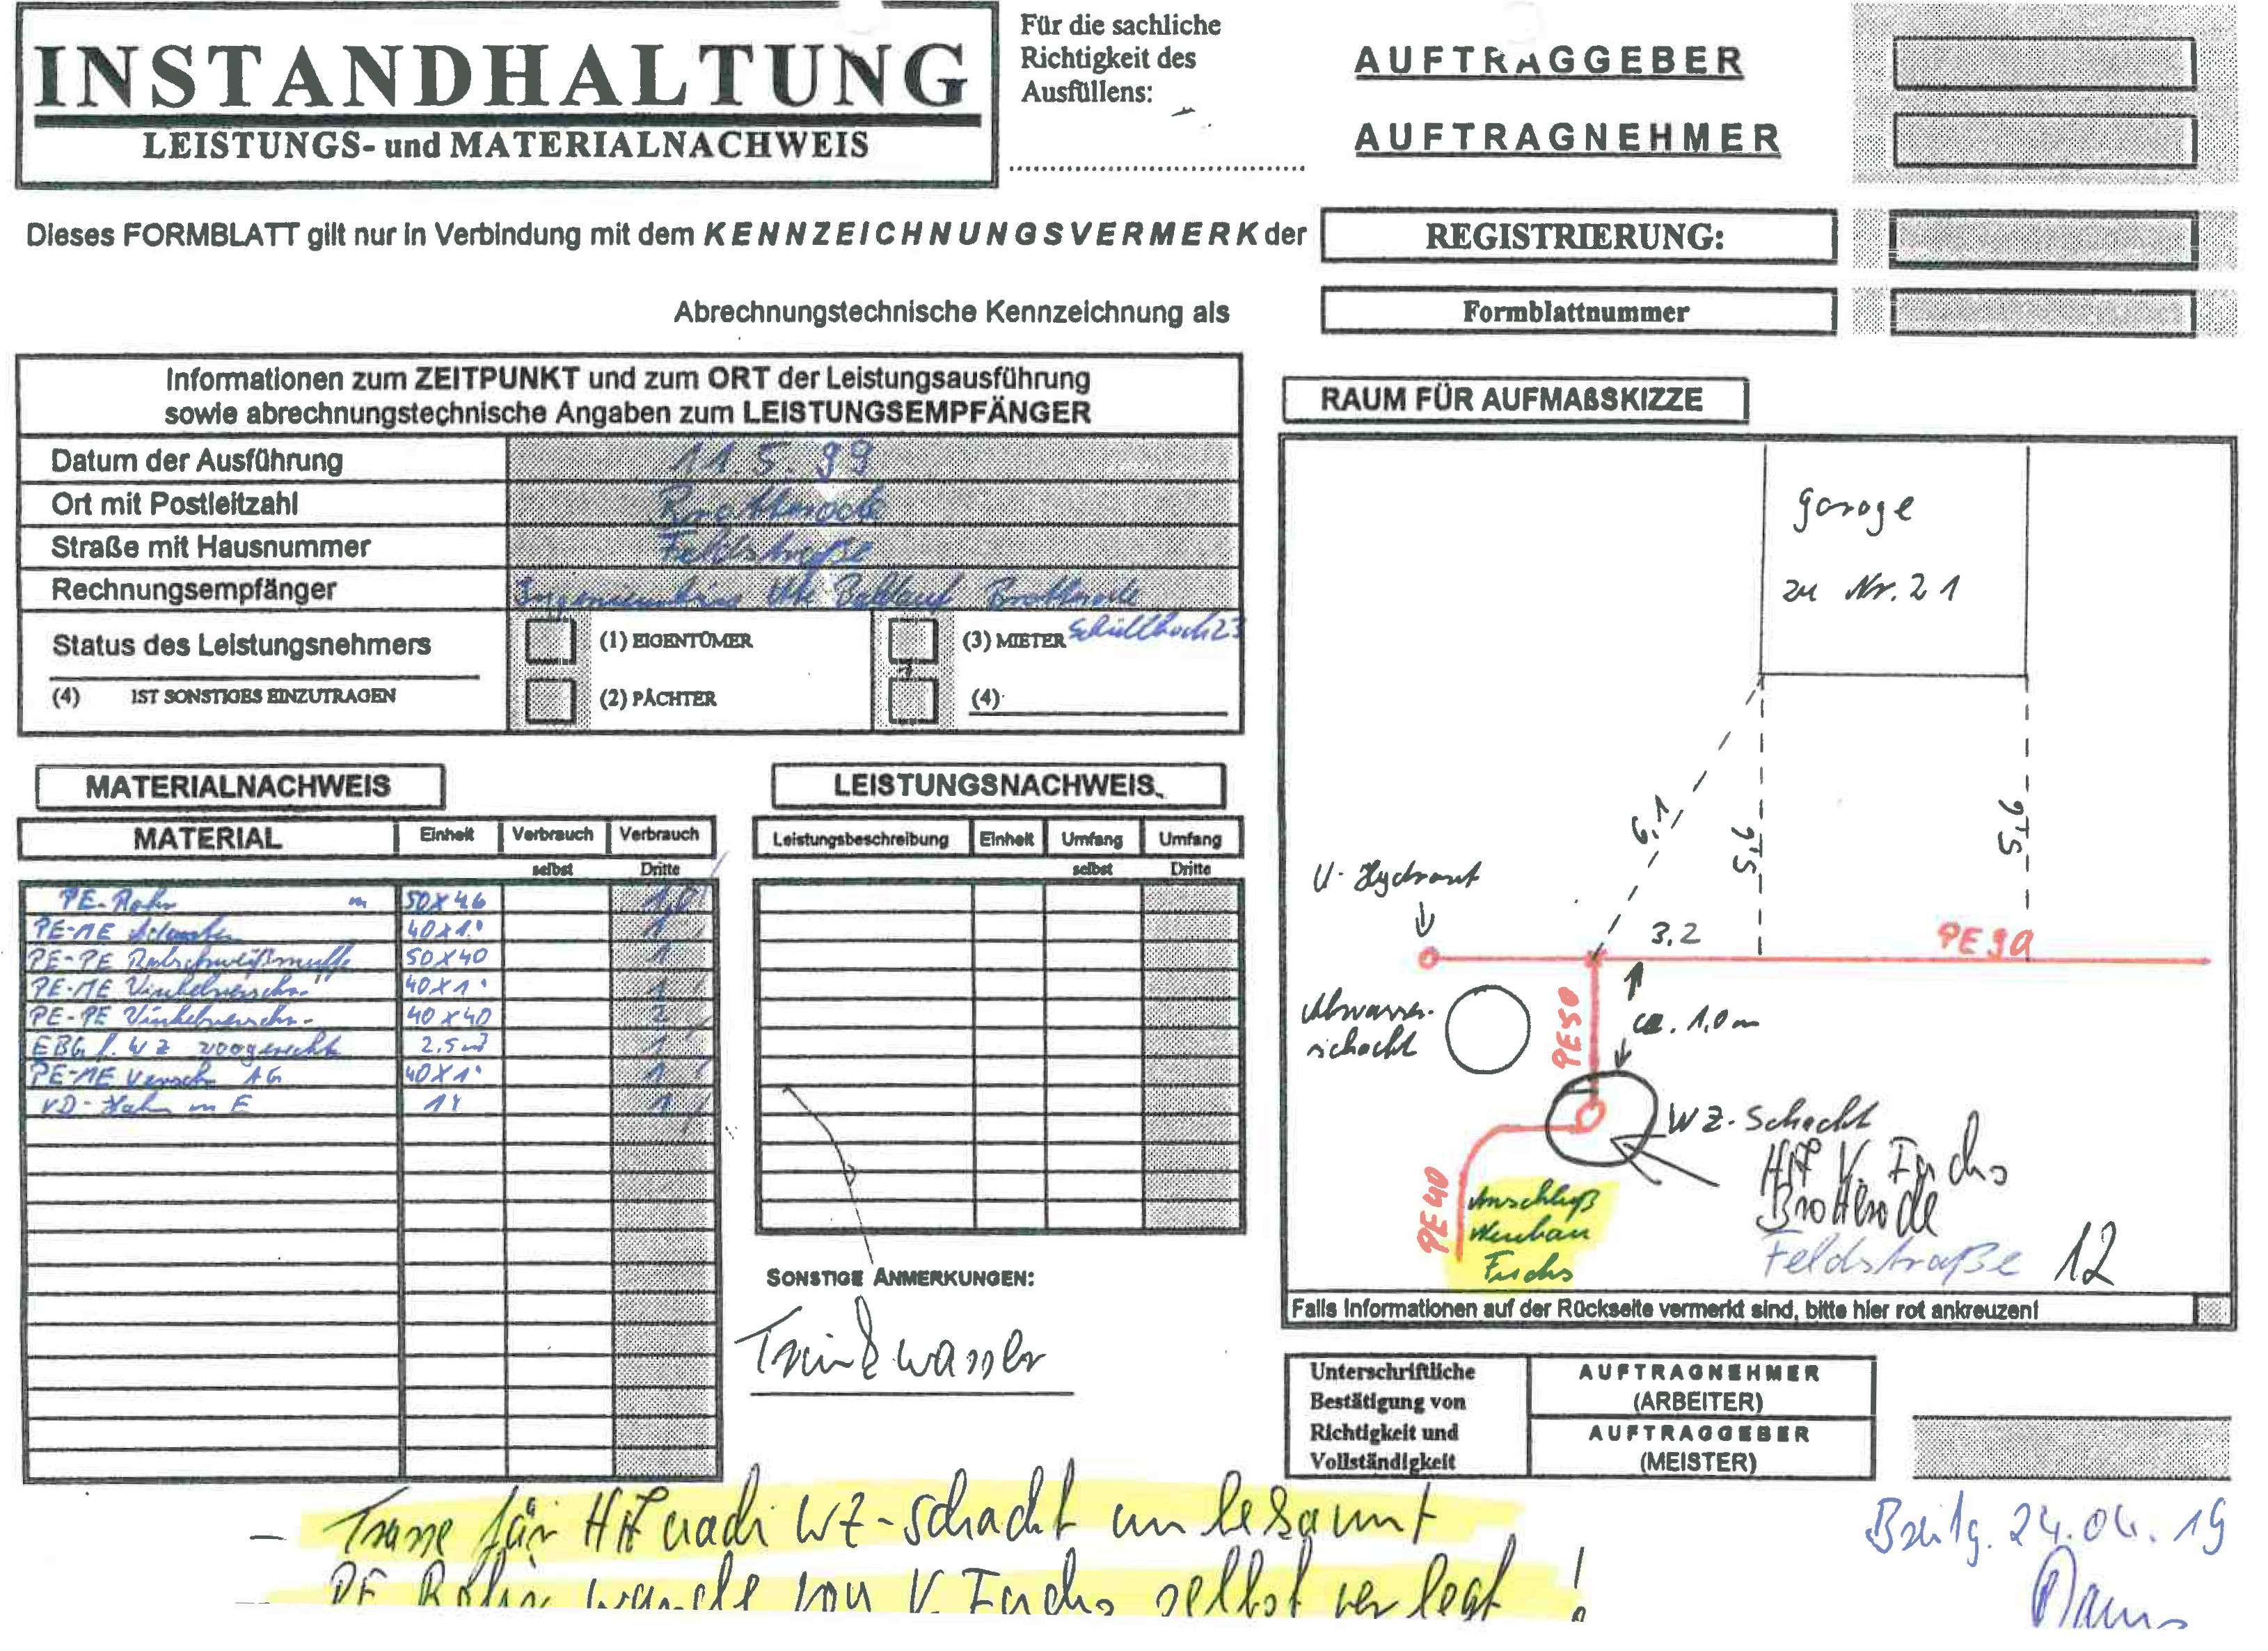 INSTANDHALTUNG
LEISTUNGS- und MATERIALNACHWEIS
Für die sachliche
Richtigkeit des
Ausfüllens:
AUFTRAGGEBER
AUFTRAGNEHMER
Dieses FORMBLATT gilt nur in Verbindung mit dem KENNZEICHNUNGSVERMERK der
REGISTRIERUNG:
Abrechnungstechnische Kennzeichnung als
Formblattnummer
Informationen zum ZEITPUNKT und zum ORT der Leistungsausführung
sowie abrechnungstechnische Angaben zum LEISTUNGSEMPFÄNGER
Datum der Ausführung 11.5.99
Ort mit Postleitzahl Brotterode
Straße mit Hausnummer Feldstraße
Rechnungsempfänger Ingenieurbüro Ute Brotterode
Status des Leistungsnehmers
(1) EIGENTÜMER
(3) MIETER
(4) IST SONSTIGES EINZUTRAGEN
(2) PÄCHTER
(4)
MATERIALNACHWEIS
MATERIAL Einheit Verbrauch Verbrauch
selbst Dritte
PE-Rohr m 50x4,6 1,0
PE-ME 40x1" 1
PE-PE 50x40 1
PE-ME Winkelverschr. 40x1" 1
PE-PE Winkelverschr. 40x40 2
EBG f. WZ 1
PE-ME Verschr. AG 40x1" 1
KD-Hahn m E 1" 1
LEISTUNGSNACHWEIS
Leistungsbeschreibung Einheit Umfang Umfang
selbst Dritte
SONSTIGE ANMERKUNGEN:
Trinkwasser
RAUM FÜR AUFMAßSKIZZE
Garage
zu Nr. 21
6,1
5,16
5,16
U-Hydrant
3,2
PE 90
Abwasser-
schacht
PE50
ca. 1,0 m
WZ-Schacht
HA V. Fuchs
Brotterode
Feldstraße 12
PE 40
Anschluß
Neubau
Fuchs
Falls Informationen auf der Rückseite vermerkt sind, bitte hier rot ankreuzen!
Unterschriftliche
Bestätigung von
Richtigkeit und
Vollständigkeit
AUFTRAGNEHMER
(ARBEITER)
AUFTRAGGEBER
(MEISTER)
- Trasse für HA nach WZ-Schacht unbekannt
- PE Rohr wurde von V. Fuchs selbst verlegt!
24.04.19